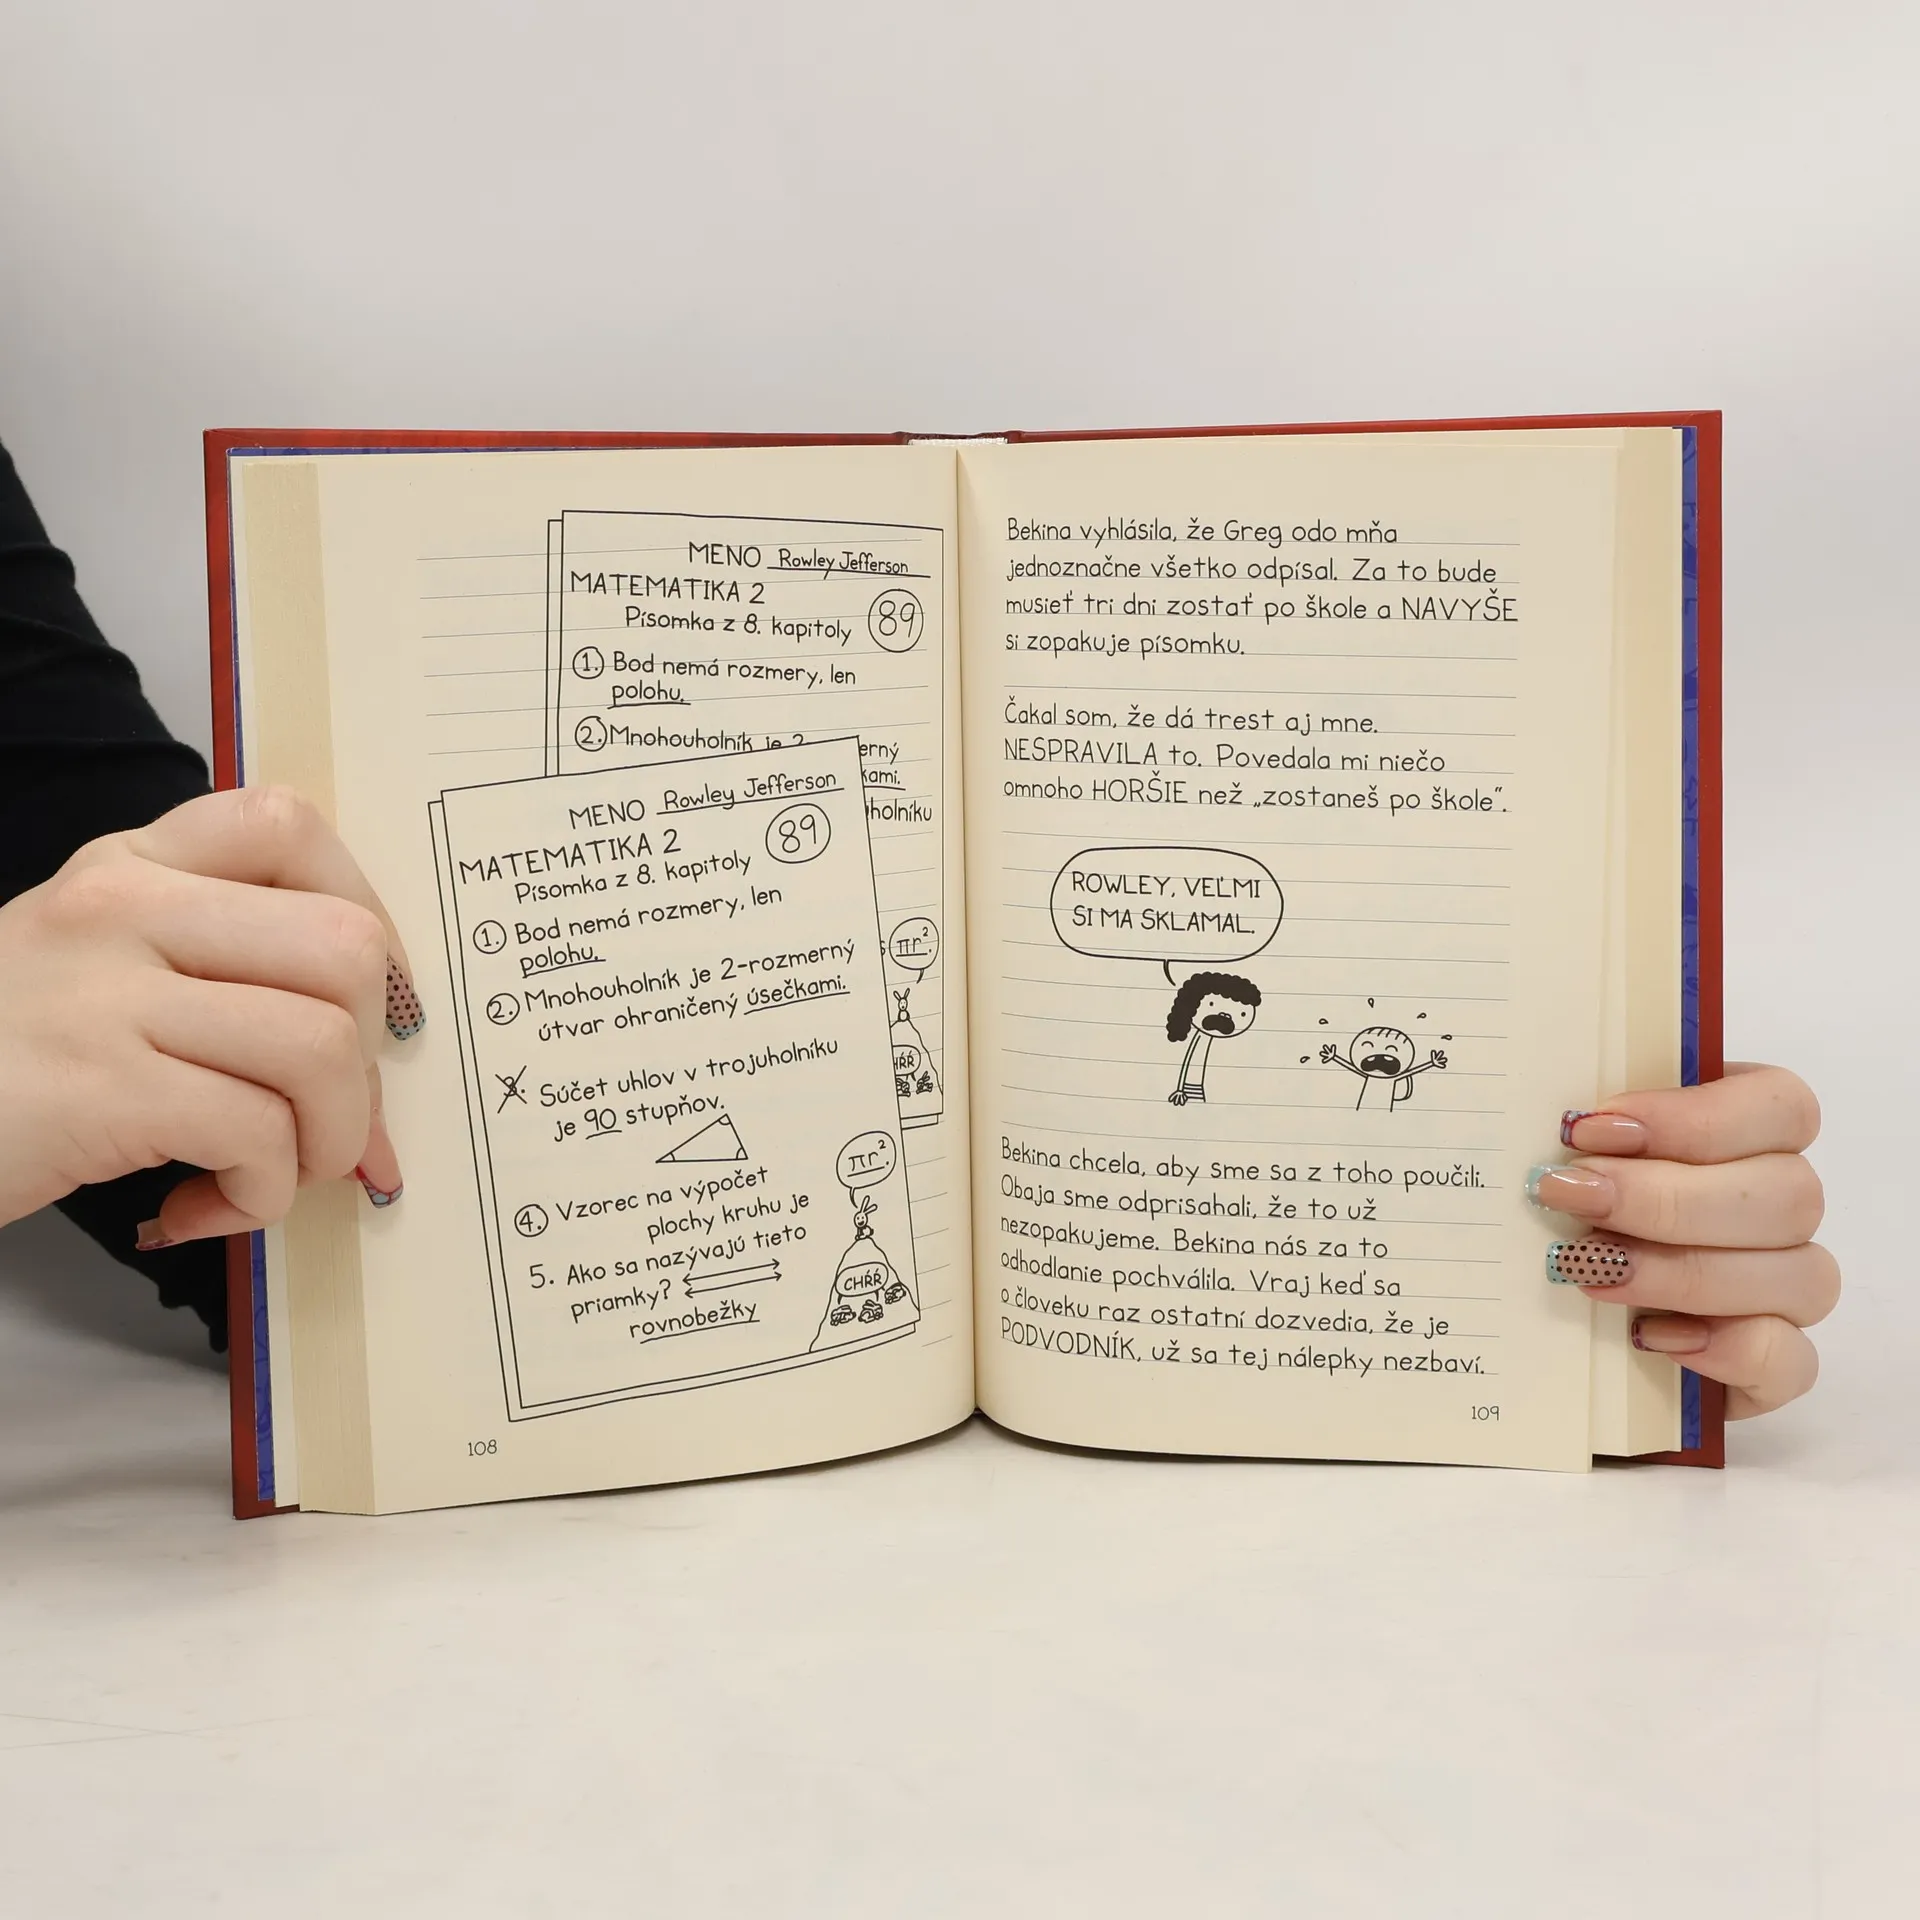 MENO Rowley Jefferson
MATEMATIKA 2
Písomka z 8. kapitoly
89
1. Bod nemá rozmery, len
polohu.
2. Mnohouholník je 2
erný
kami.
holníku
πr².
MENO Rowley Jefferson
MATEMATIKA 2
Písomka z 8. kapitoly
89
1. Bod nemá rozmery, len
polohu.
2. Mnohouholník je 2-rozmerný
útvar ohraničený úsečkami.
3. Súčet uhlov v trojuholníku
je 90 stupňov.
4. Vzorec na výpočet
plochy kruhu je
πr².
5. Ako sa nazývajú tieto
priamky?
rovnobežky
CHŔŔ
108
Bekina vyhlásila, že Greg odo mňa
jednoznačne všetko odpísal. Za to bude
musieť tri dni zostať po škole a NAVYŠE
si zopakuje písomku.
Čakal som, že dá trest aj mne.
NESPRAVILA to. Povedala mi niečo
omnoho HORŠIE než „zostaneš po škole“.
ROWLEY, VEĽMI
SI MA SKLAMAL.
Bekina chcela, aby sme sa z toho poučili.
Obaja sme odprisahali, že to už
nezopakujeme. Bekina nás za to
odhodlanie pochválila. Vraj keď sa
o človeku raz ostatní dozvedia, že je
PODVODNÍK, už sa tej nálepky nezbaví.
109